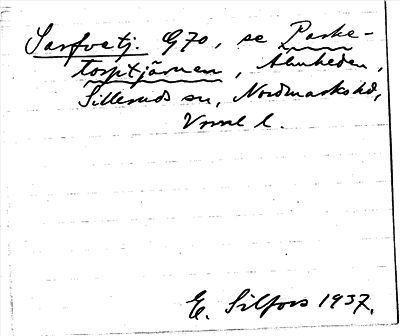 Sarfvetj. G70, se Parke-
torptjärnen, Älmheden,
Silleruds sn, Nordmarks hd,
Vrml l.
E. Silfors 1937.